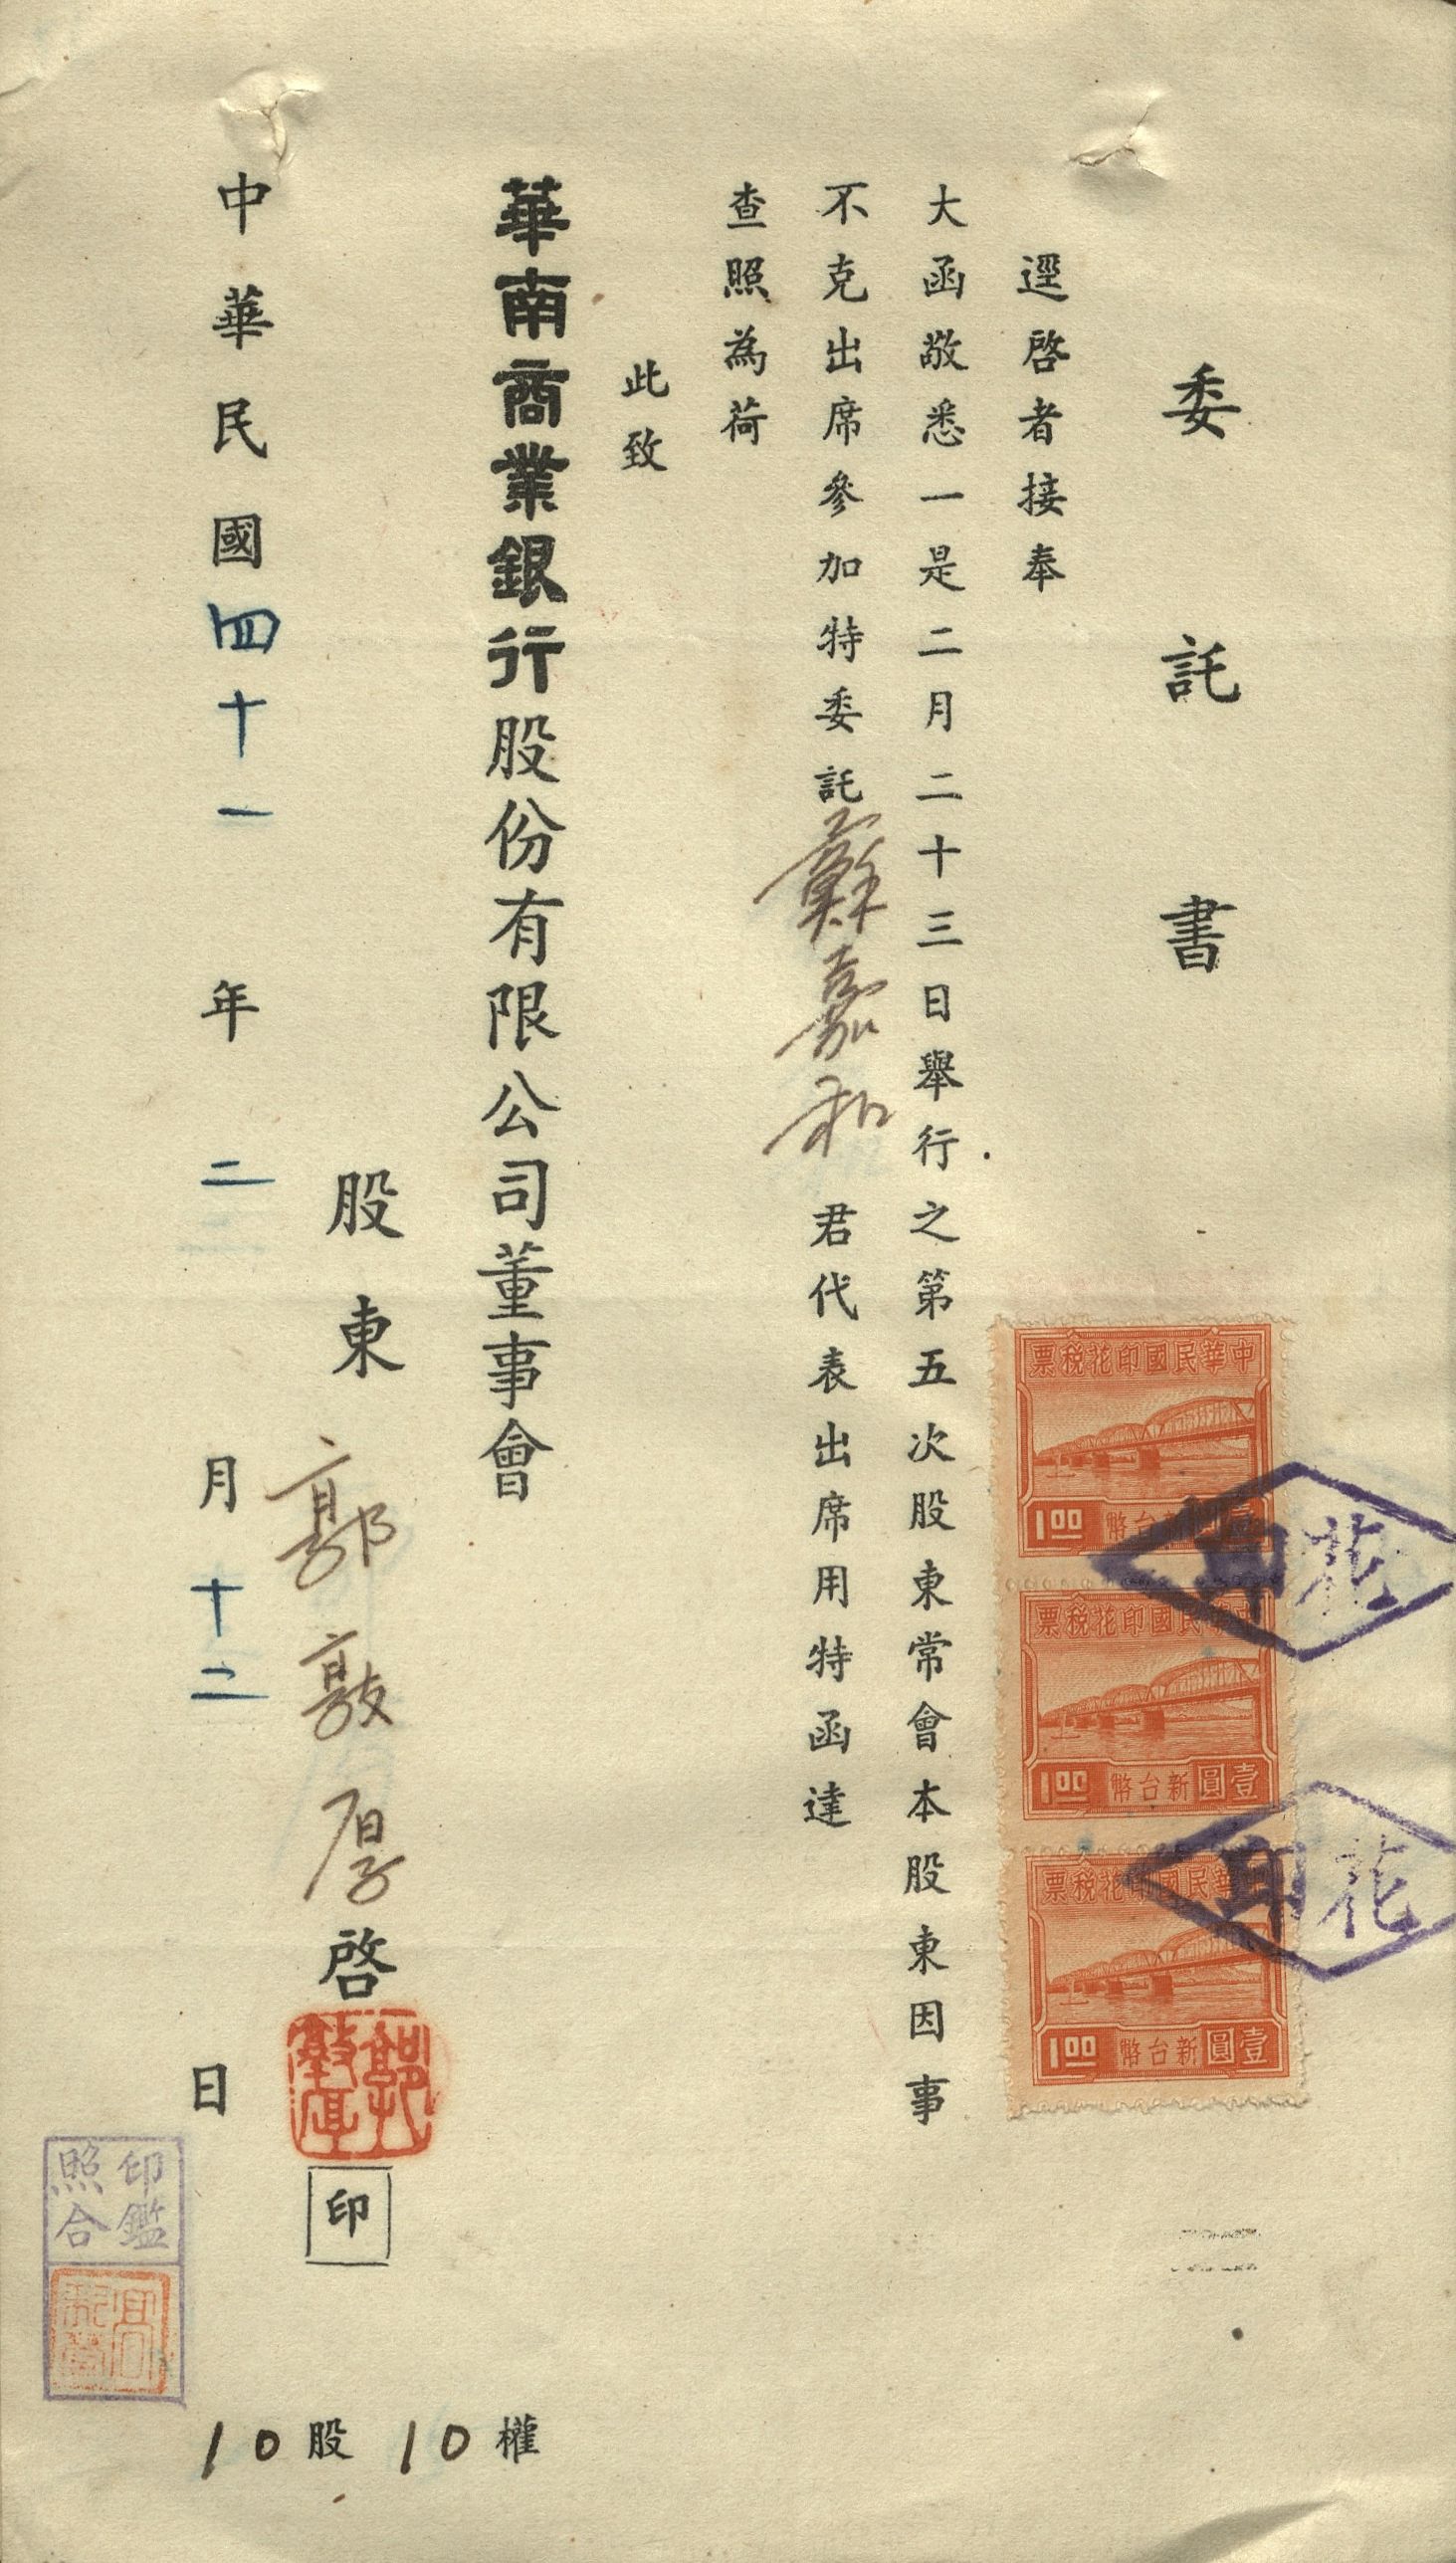 委託書
逕啓者接奉
大函敬悉一是二月二十三日舉行之第五次股東常會本股東因事
不克出席參加特委託蘇嘉和君代表出席用特函達
查照為荷
此致
華南商業銀行股份有限公司董事會
股東郭敦厚啓
郭敦厚
印
中華民國四十一年二月十二日
10股10權
印鑑
照合
中華民國印花稅票
1.00 壹圓新台幣
中華民國印花稅票
1.00 壹圓新台幣
中華民國印花稅票
1.00 壹圓新台幣
印花
印花